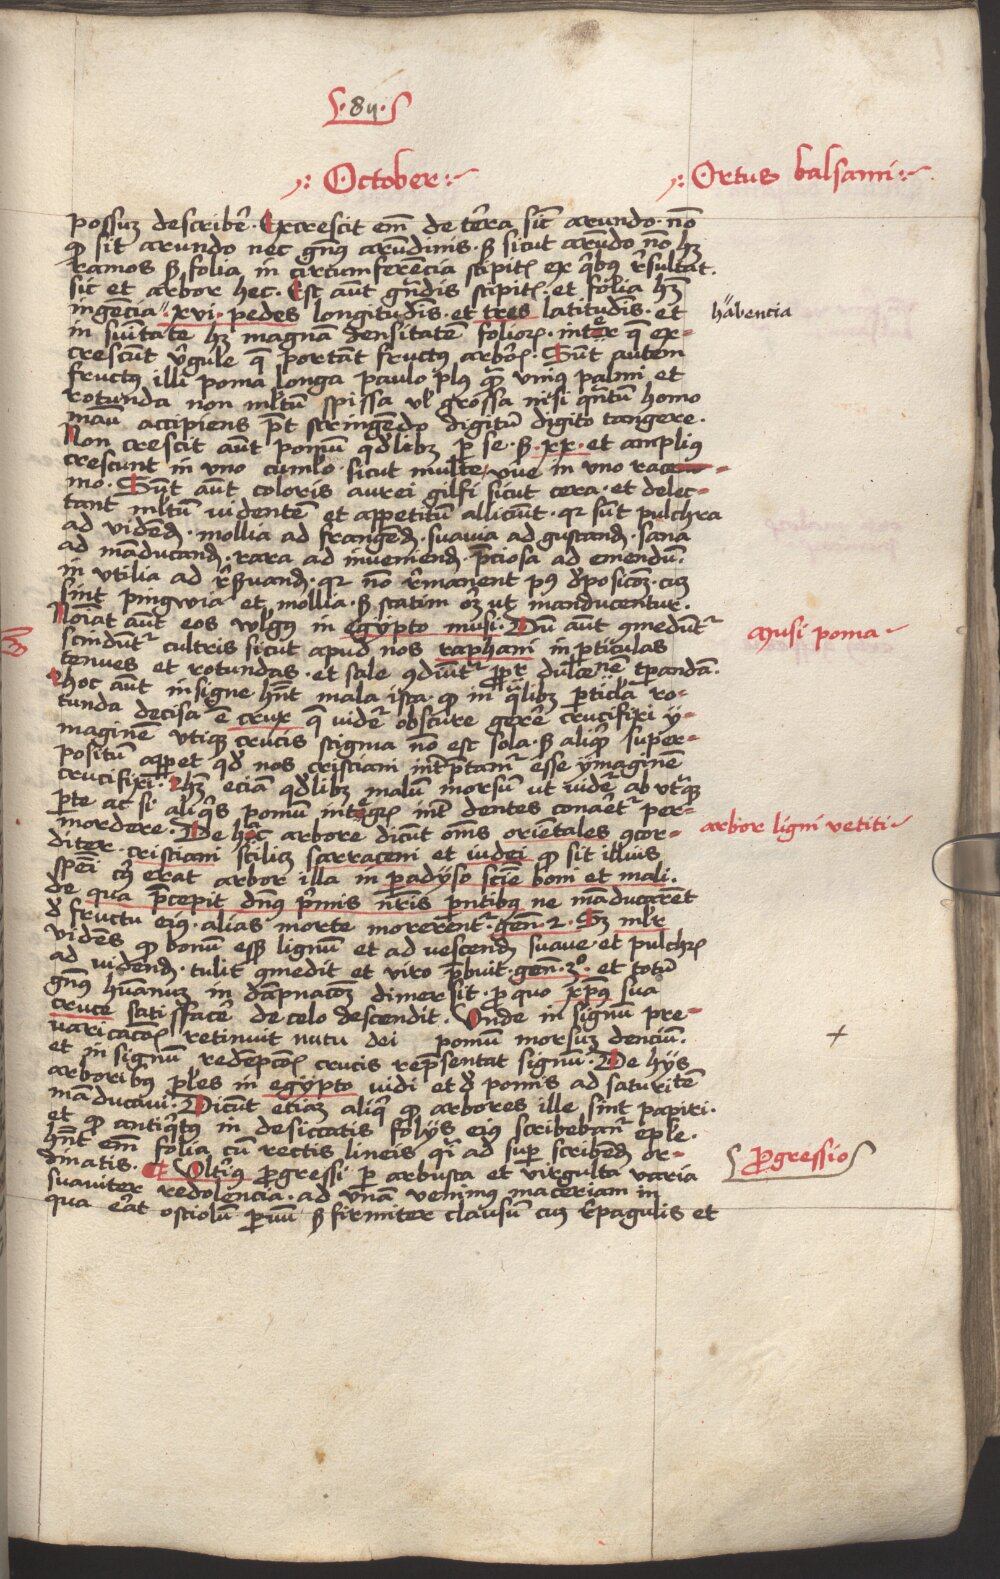 ·84·
October
Ortus balsami
possum describ'e · Excrescit em̄ de t'ra sic̄ arundo · nō
ꝙ sit arundo nec gn̄us arūdinis · sꝫ sicut arūdo nō hꝫ
ramos sꝫ folia in circumferēcia stipit' ex q'bus r'sultat ·
sic et arbor hec · Est aūt gn̄dis stipit' · et folia hn̄
ingēcia xvi · pedes longitudīs · et tres latitudīs · et
habencia
in suītate hꝫ magnam densitatē folior' · inter q̄ ex-
crescūt v'gule q̄ portāt fructus arbor' · Sūt autem
fructus illi poma longa paulo plus qm̄ vnius palmi et
rotunda non ml'tū spissa vl' grossa nisi qn̄tū homo
manū accipiens p̄t stringēdo digitū digito tangere ·
Non crescit aūt pomū qd'libꝫ p se · sꝫ xx · et amplius
crescunt in vno cumlo sicut multe vve in vno race-
mo · Sūt aūt coloris aurei gilfi sicut cera · et delec-
tant ml'tū uidentē et appetitū alliciūt · qr sūt pulchra
ad vidēd' · mollia ad frangēd' · suauia ad gustand' · sana
ad māducand' · rara ad inveniend' · p̄ciosa ad emendū ·
in vtilia ad r'seruand' · qr nō r'manent pꝰ d'posicōꝫ · cū
sint pingwia et mollia · sꝫ statim oꝫ ut manducentur ·
Noīat aūt eos wlgus in egypto musi · Dū aūt 9medūtur
musi poma
scindūt' cultris sicut apud nos raphani in p'ticulas
tenues et rotundas · et sale 9diūt' ppt' dulcēnē tp̄andā ·
Hoc aūt insigne hn̄t mala ista · ꝙ in q'libꝫ p'ticl'a ro-
tunda decisa ē crux q̄ vidē' obscure gerē' crucifixi y-
maginē vtiqꝫ crucis stigma nō est sola · sꝫ aliq'd super-
positū apparet qd' nos cristiani int'p̄tam' esse ymaginē
crucifixi · Hꝫ eciā qd'libꝫ malū morsū ut vidē' ab vt'qꝫ
p'te ac si aliq's pomū integr' int' dentes conaret' per-
mordere · De hac arbore dicūt om̄s oriētales 9cor-
arbor ligni vetiti
diter · cristiani scilicꝫ sarraceni et iudei ꝙ sit illius
spēi cꝰ erat arbor illa in padyso scīe boni et mali ·
de qua p̄cepit dn̄us p'mis nr̄is pntibus ne māducarēt
d' fructu eiꝰ · alias morte morerēnt' · gen̄ · 2 · Sꝫ ml'r
vidēs ꝙ bonū esset lignū et ad vescend' suaue · et pulchr'
ad vidend' · tulit 9medit et viro p̄buit · gen̄ · 3° · et totū
gn̄us hūanum in dāpnacōꝫ dimersit · p quo xp̄us sua
cruce satisfac'e de celo descendit · Unde in signū pre-
varicacōis retinuit nutu dei pomū morsum denciū ·
et in signū redēpcōis crucis rep̄sentat signū · De hys
arboribꝰ pl'es in egypto vidi et d' pomis ad saturitē
māducaui · Dicūt etiam aliq' ꝙ arbores ille sint papiri ·
et ꝙ antiq'tus in desiccatis folys eiꝰ scribebān' ep'le ·
hn̄t em̄ folia cū rectis lineis q'i ad sup scribend' or-
dinatis · Ulteriꝰ pgressi p arbusta et virgulta varia
Progressio
suauiter redolencia · ad vnā venimꝰ maceriam in
qua erat ostiolū paruū sꝫ firmiter clausū cū r'pagulis et